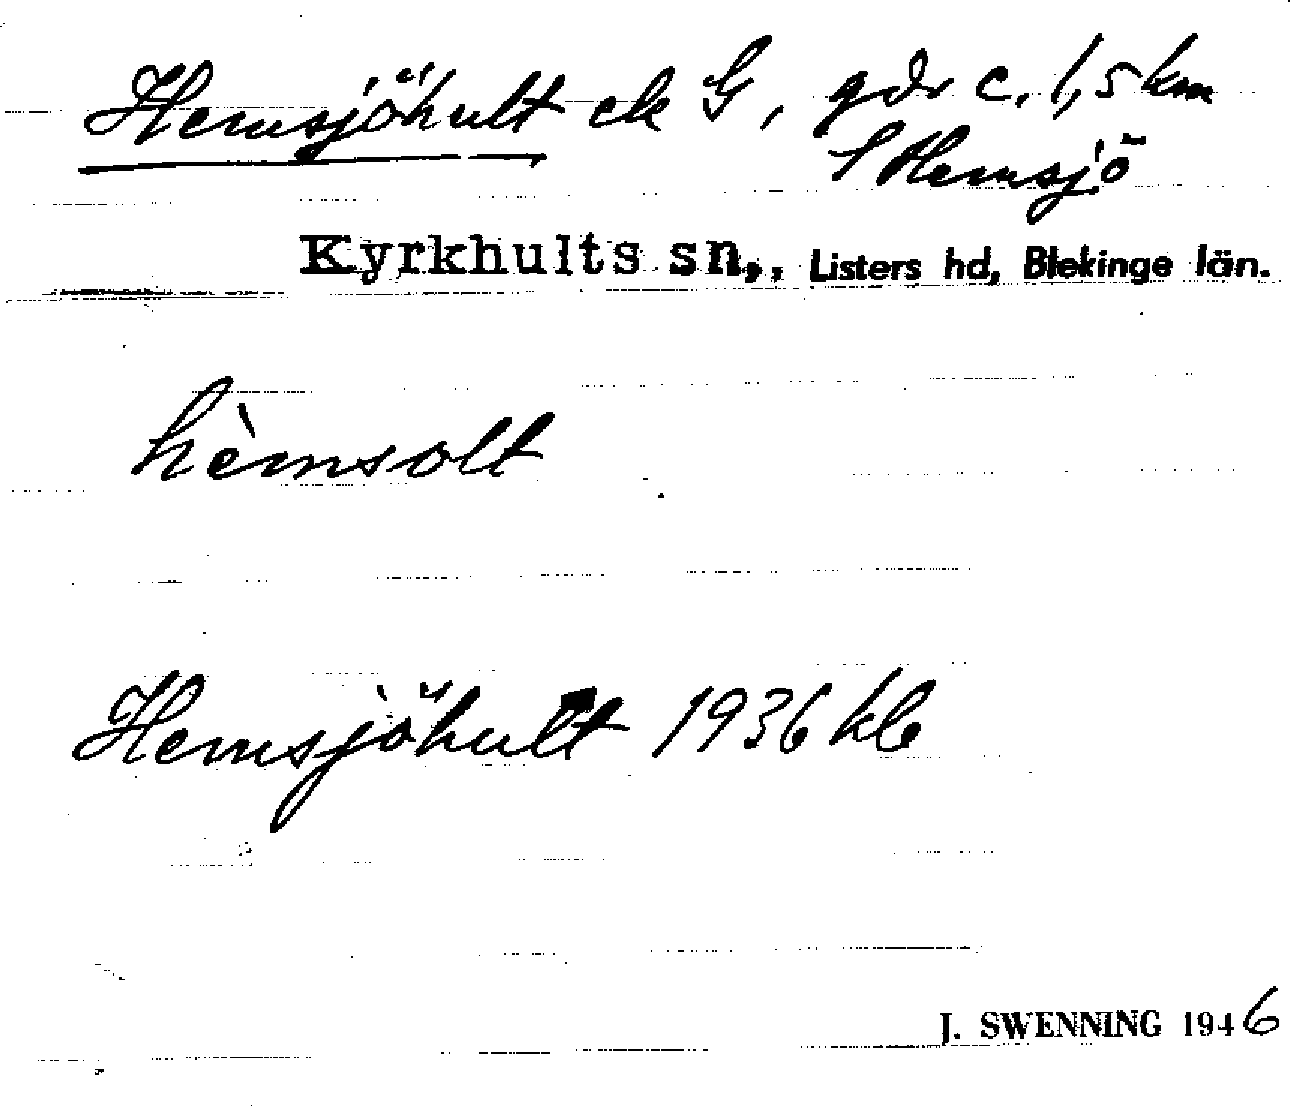 Hemsjöhult ek G, gdr c. 1,5 km
S Hemsjö
Kyrkhults sn,, Listers hd, Blekinge län.
hèmsolt
Hemsjöhult 1936 kb
J. SWENNING 1946